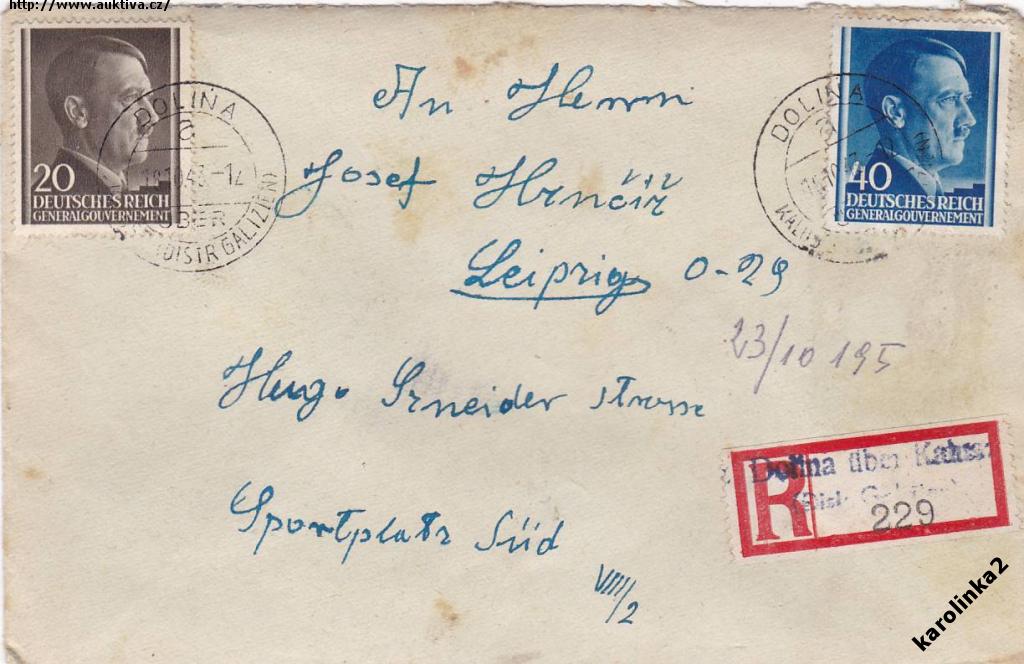 http://www.auktiva.cz/
20
DEUTSCHES REICH
GENERALGOUVERNEMENT
DOLINA
ÜBER
(DISTR GALIZIEN)
40
DEUTSCHES REICH
GENERALGOUVERNEMENT
DOLINA
An Herrn
Josef Hrnčíř
Leipzig O-29
23/10 195
Hugo Srneider strasse
R
Dolina über
229
Sportplatz Süd
VIII/2
karolinka2